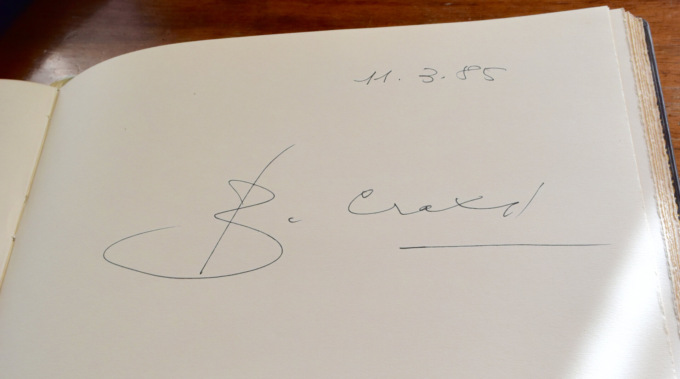 11.3.85
B. Craxi